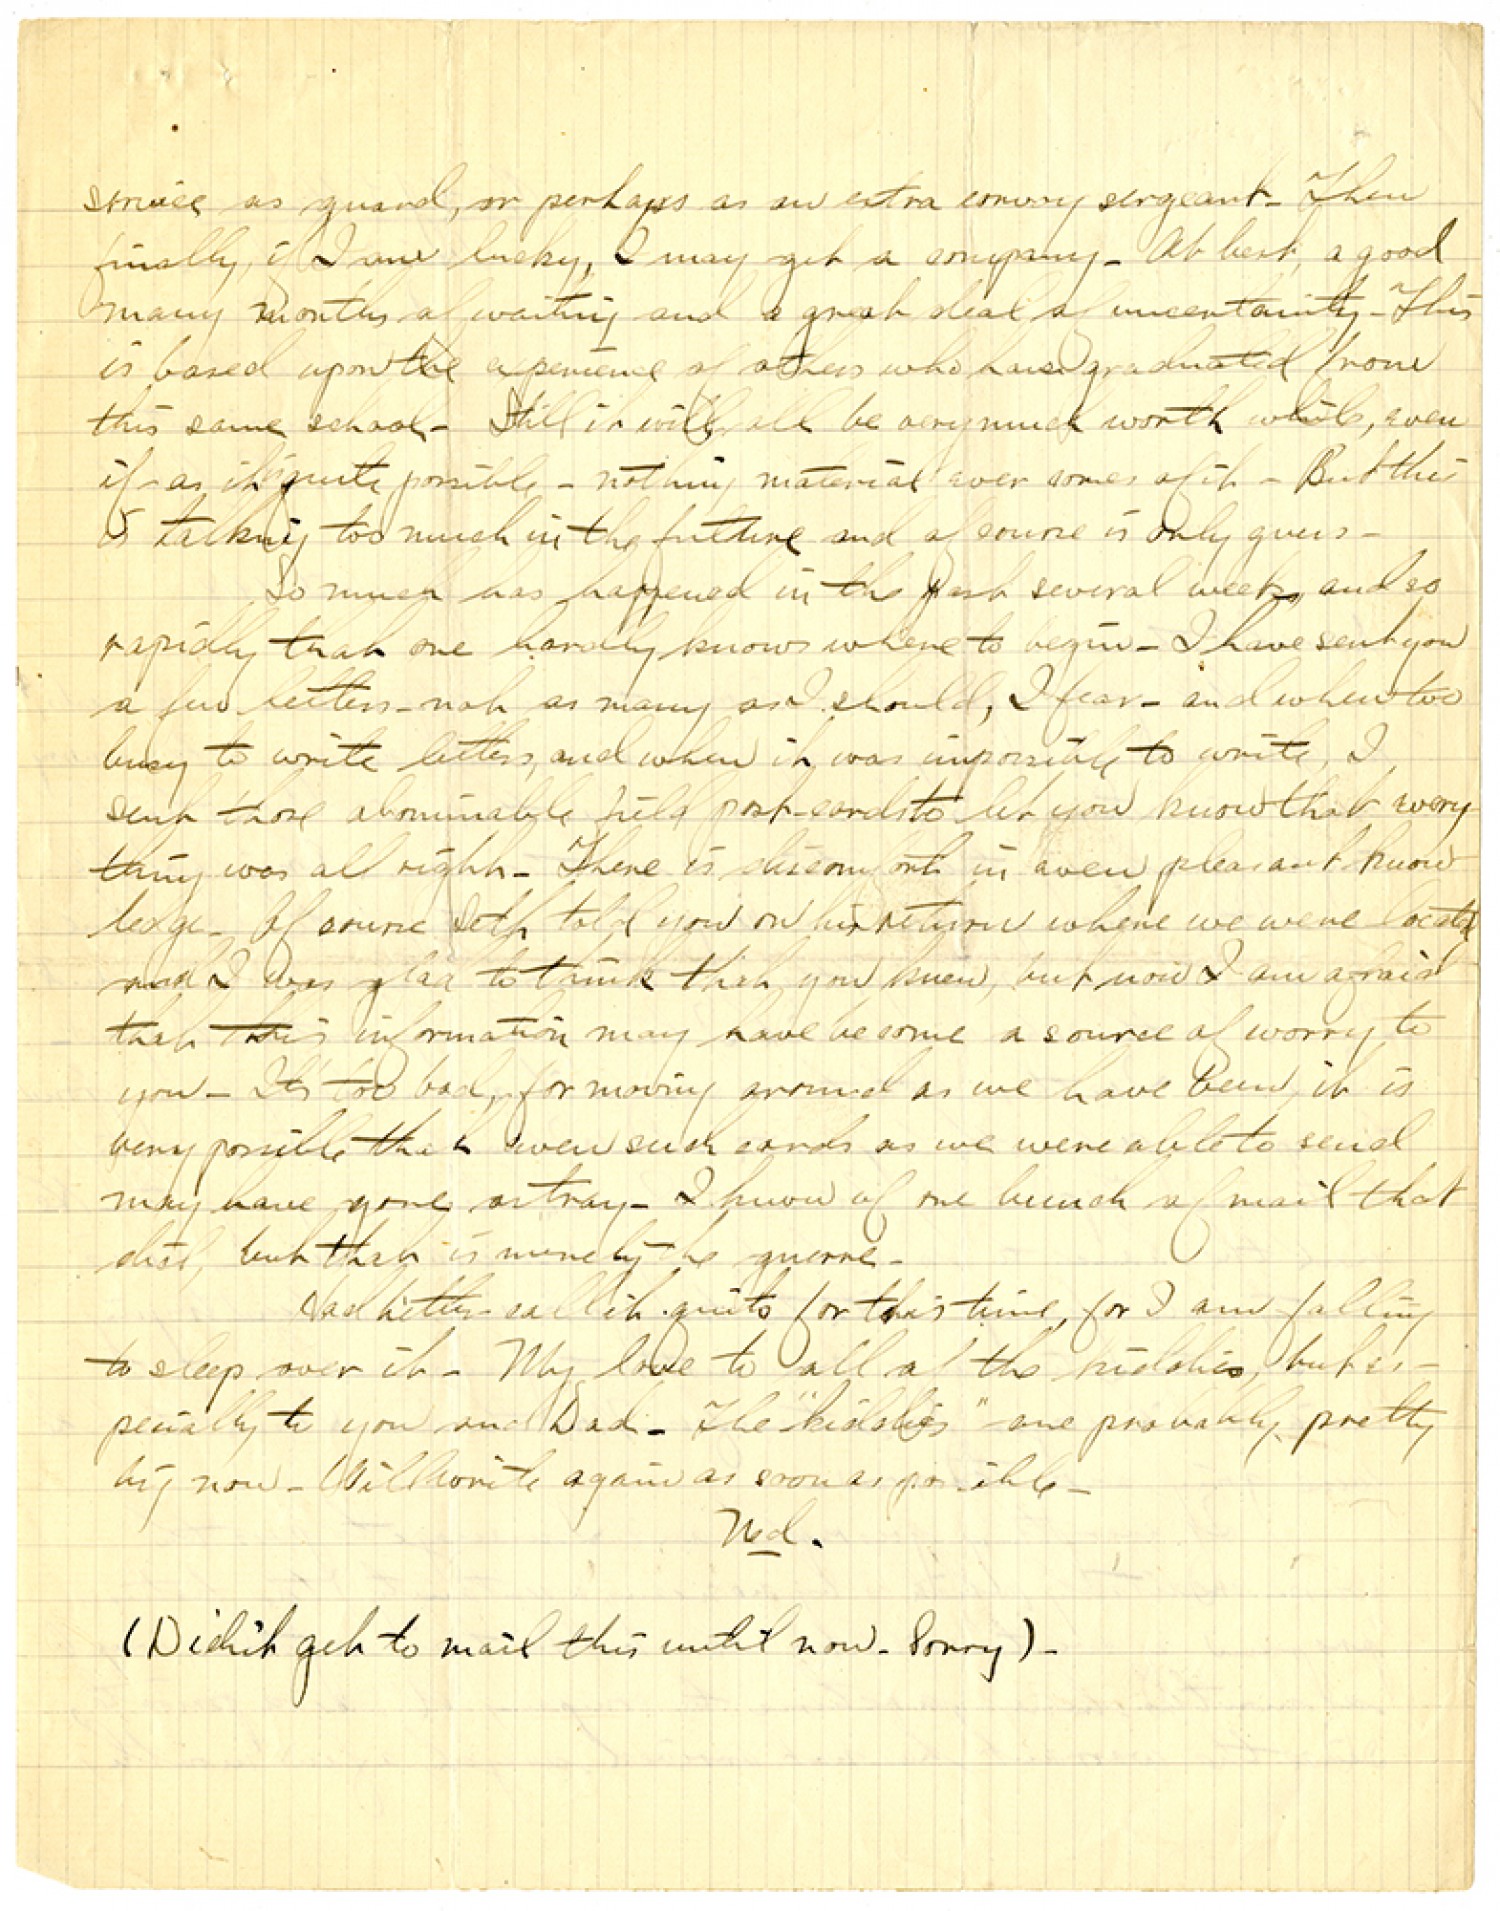 service as guard, or perhaps as an extra convoy sergeant - Then
finally, if I am lucky, I may get a company - At best, a good
many months of waiting and a great deal of uncertainity - This
is based upon the experience of others who have graduated from
this same school - Still it will all be very much worth while, even
if - as is quite possible - nothing material ever comes of it - But this
is talking too much in the future and of course is only guess -
So much has happened in the past several weeks, and so
rapidly that one hardly knows where to begin - I have sent you
a few letters - not as many as I should, I fear - and when too
busy to write letters, and when it was impossible to write, I
sent those abominable field post-cards to let you know that every
thing was all right - There is discomfort in even pleasant know
ledge - Of course Seth told you on his return where we were located
and I was glad to think that you knew, but now I am afraid
that this information may have become a source of worry to
you - It's too bad, for moving around as we have been, it is
very possible that even such cards as we were able to send
may have gone astray - I know of one bunch of mail that
did, but that is merely the guerre -
Had better call it quits for this time, for I am falling
to sleep over it - My love to all of the kiddies, but es -
pecially to you and Dad - The "kiddies" are probably pretty
big now - Will write again as soon as possible -
Ned.
(Didn't get to mail this until now - Sorry) -